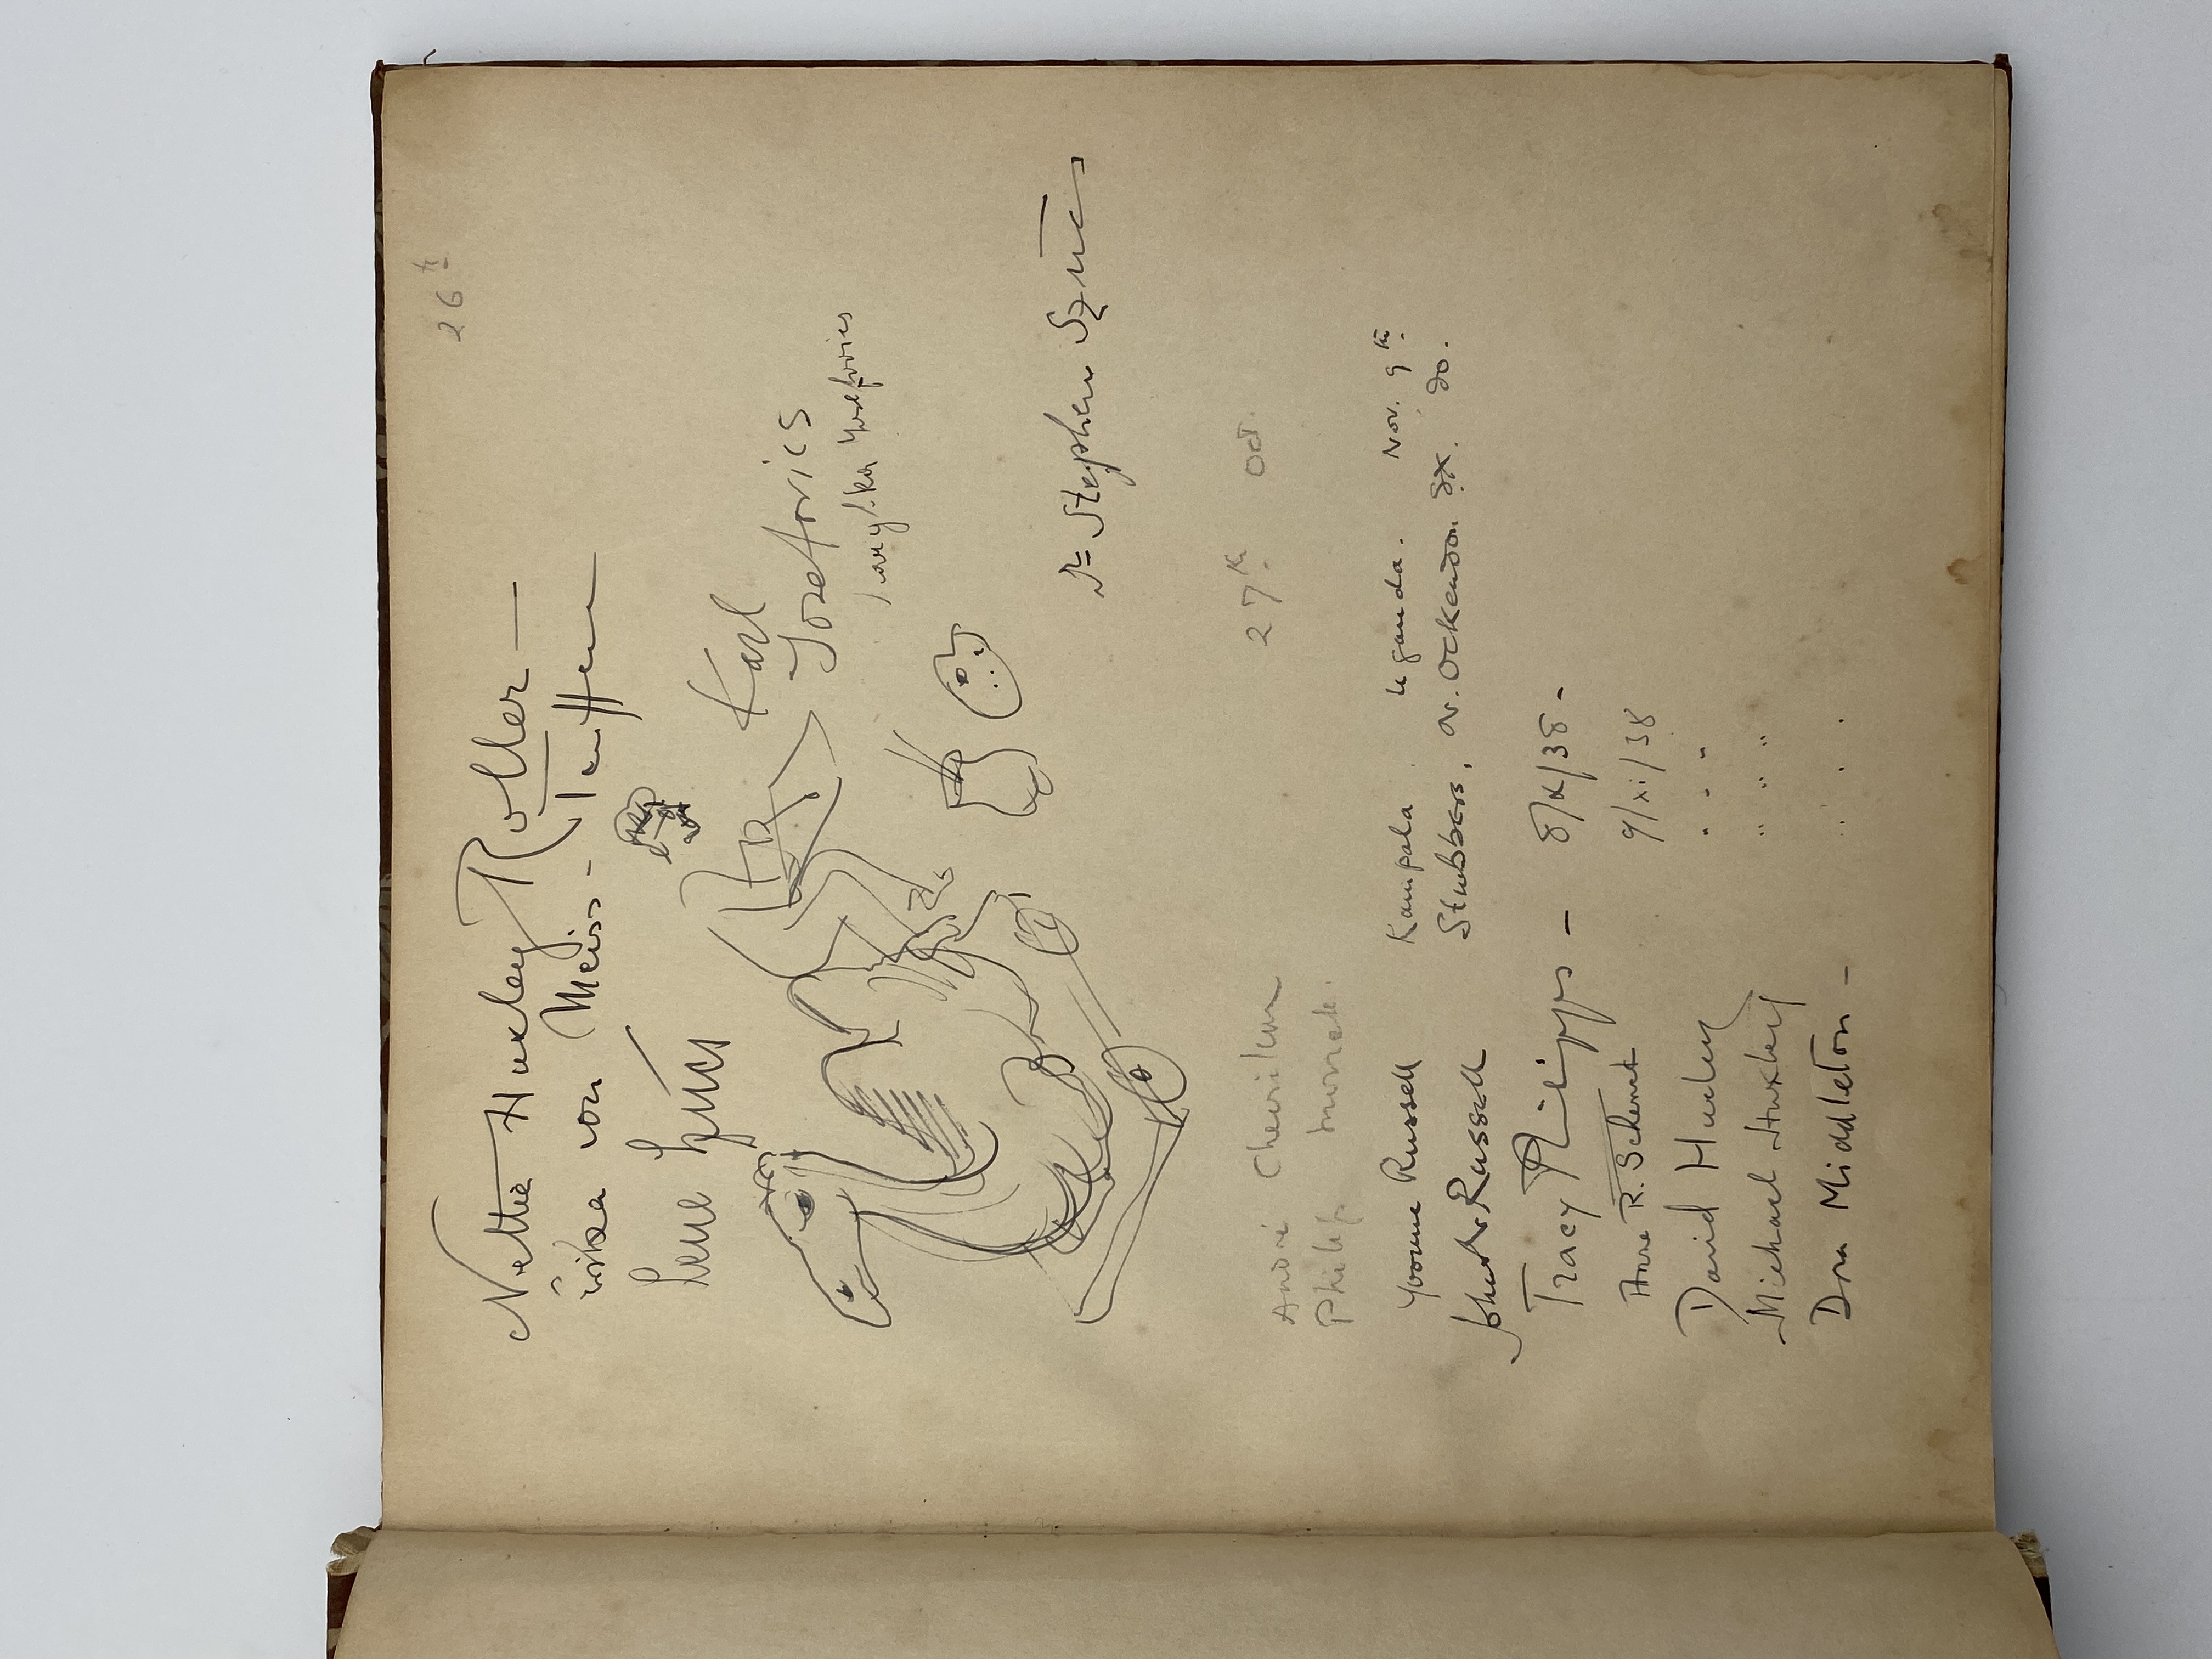 26th
Nettie Huxley
Toller —
von Meiss - Teuffen
Lene Szüts
Karl
Josefovics
Dr Stephen Szüts
27th Oct.
André Chevrillon
Philip
Yvonne Russell Kampala. Uganda. Nov. 9th
John Russell Stubbers, nr. Ockendon Sx. do.
Tracy Philipps — 8/XI/38 -
Anne R. Schenk 9/xi/38
David Huxley " " "
Michael Huxley " " " "
Dora Middleton —